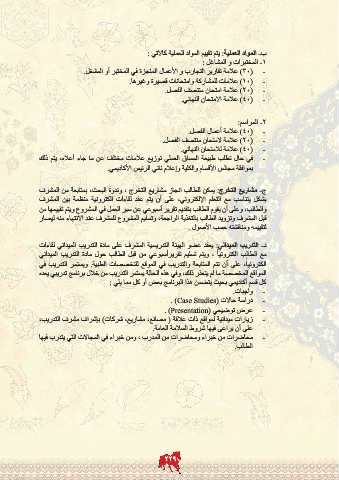 ب- المواد العملية: يتم تقييم المواد العملية كالآتي :
1- المختبرات و المشاغل :
- (30) علامة تقارير التجارب و الأعمال المنجزة في المختبر أو المشغل.
- (10) علامات المشاركة وامتحانات قصيرة وغيرها.
- (20) علامة امتحان منتصف الفصل.
- (40) علامة الامتحان النهائي.
2- المراسم:
- (40) علامة أعمال الفصل.
- (20) علامة لامتحان منتصف الفصل.
- (40) علامة للامتحان النهائي.
- في حال تطلب طبيعة المساق العملي توزيع علامات مختلف عن ما جاء أعلاه، يتم ذلك
بموافقة مجالس الأقسام والكلية وإعلام نائب الرئيس الأكاديمي.
ج- مشاريع التخرج: يمكن للطالب انجاز مشاريع التخرج ، وندوة البحث، بمتابعة من المشرف
بشكل يتناسب مع التعلم الإلكتروني، على أن يتم عقد لقاءات الكترونية منتظمة بين المشرف
والطالب، وعلى أن يقوم الطالب بتقديم تقرير أسبوعي عن سير العمل في المشروع ويتم تقييمها من
قبل المشرف وتزويد الطالب بالتغذية الراجعة، وتسليم المشروع للمشرف عند الانتهاء منه ليصار
لتقييمه ومناقشته حسب الأصول .
د- التدريب الميداني: يعقد عضو الهيئة التدريسية المشرف على مادة التدريب الميداني لقاءات
مع الطالب الكترونياً ، ويتم تسليم تقرير أسبوعي من قبل الطالب حول مادة التدريب الميداني
الكترونيا، على أن تتم المتابعة والتدريب في الموقع للتخصصات الطبية. ويستمر التدريب في
المواقع المخصصة ما لم يتعذر ذلك، وفي هذه الحالة يستمر التدريب من خلال برنامج تدريبي يعده
كل قسم أكاديمي بحيث يتضمن هذا البرنامج بعض أو كل مما يلي :
- واجبات.
- دراسة حالات (Case Studies) .
- عرض توضيحي (Presentation) .
- زيارات ميدانية لمواقع ذات علاقة ( مصانع، مشاريع، شركات) بإشراف مشرف التدريب،
على أن يراعى فيها شروط السلامة العامة.
- محاضرات من خبراء ومحاضرات من المدرب ، ومن خبراء في المجالات التي يتدرب فيها
الطالب.